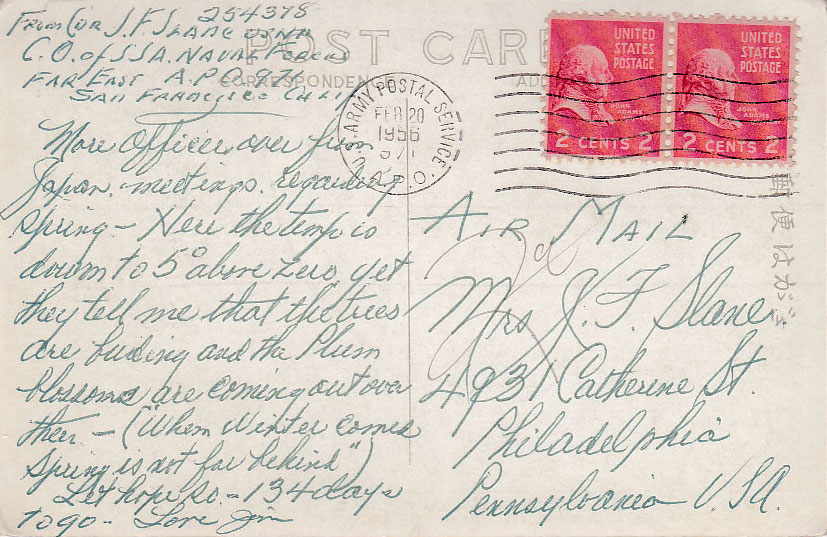 From Cdr J. F. Slane USNR 254378
C.O. of SSA. Naval Forces
Far East A.P.O. 971
San Francisco Calif
POST CARD
CORRESPONDENCE
ADD
ARMY POSTAL SERVICE
FEB 20
1956
971
A.P.O.
UNITED STATES POSTAGE
JOHN ADAMS
2 CENTS 2
UNITED STATES POSTAGE
JOHN ADAMS
2 CENTS 2
郵便はがき
More Officers over from
Japan. meetings. regarding
spring – Here the temp is
down to 5° above zero, yet
they tell me that the trees
are buding and the Plum
blossoms are coming out over
ther. – ("When Winter comes
Spring is not far behind")
Let hope so. – 134 days
to go – Love Jim
Air Mail
Mrs J. F. Slane
4931 Catherine St.
Philadelphia
Pennsylvania U.S.A.